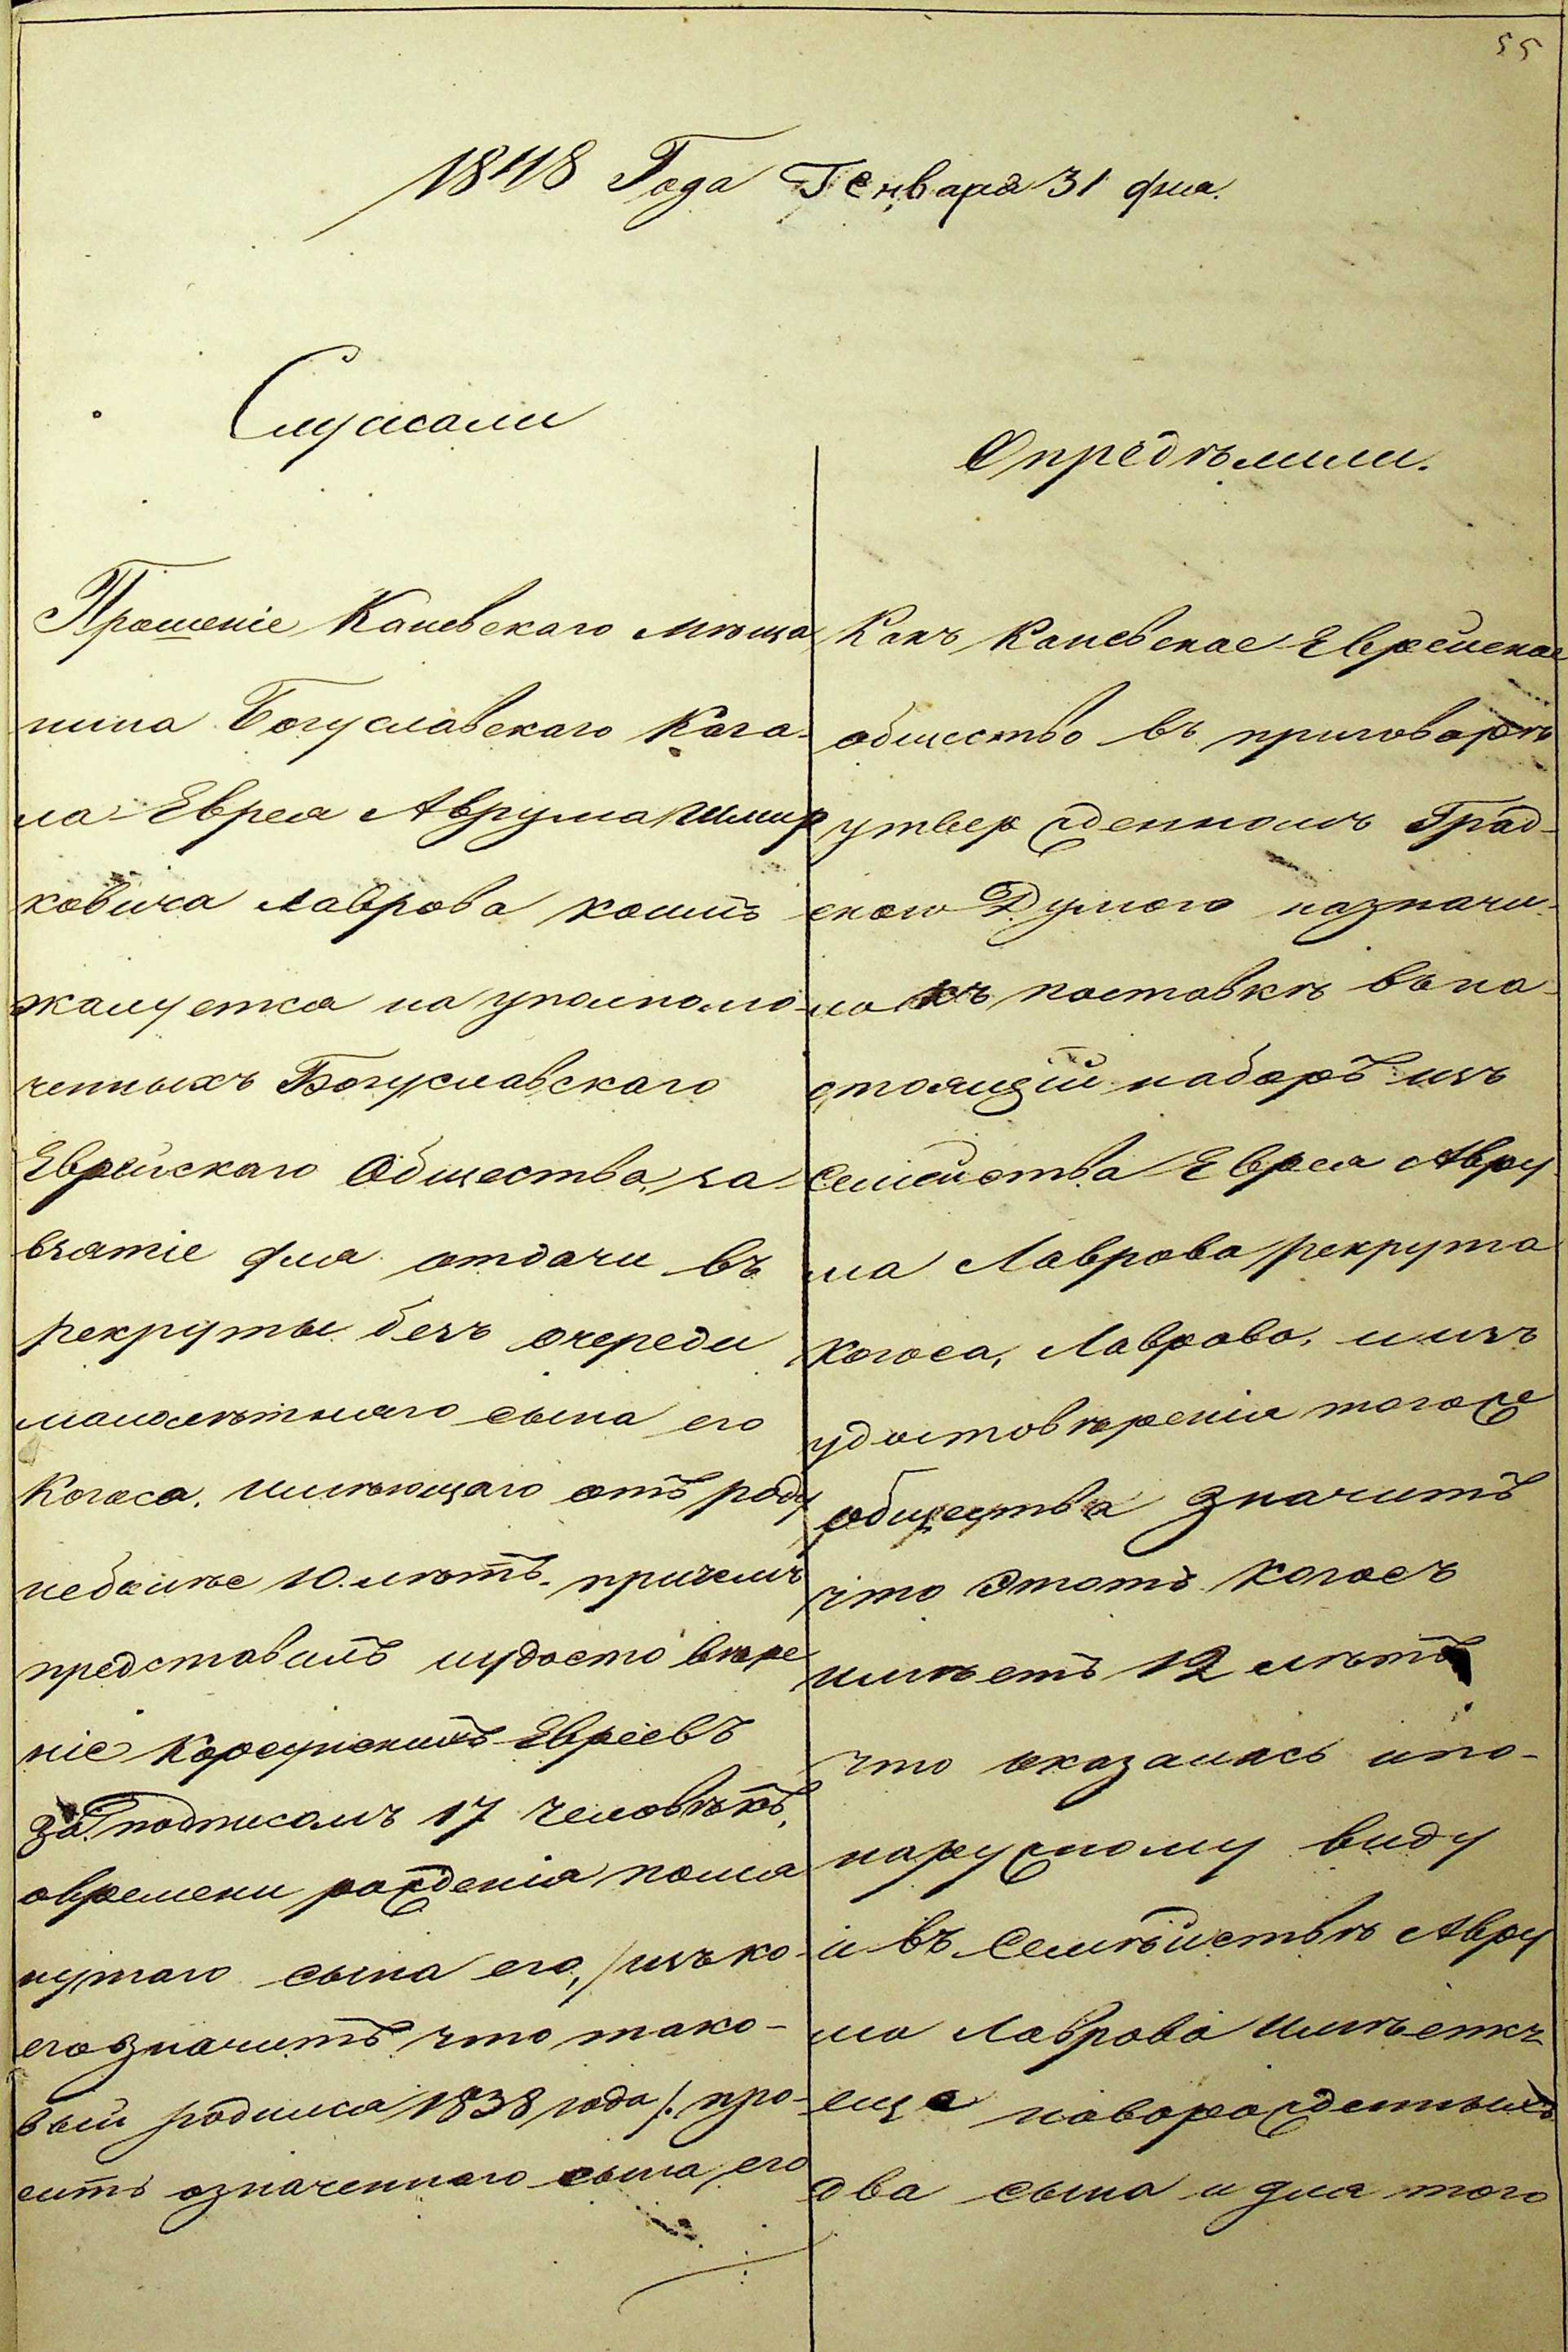 55
1848 Года Генваря 31 дня.
Слушали
Прошеніе Каневскаго мѣща
нина Богуславскаго Кага-
ла Еврея Аврума Шмир
ковича Лаврова коимъ
жалуется на уполномо-
ченныхъ Богуславскаго
Еврейскаго Общества, за
взятіе для отдачи въ
рекруты безъ очереди
малолѣтняго сына его
Когоса, имѣющаго отъ роду
неболѣе 10. лѣтъ. причемъ
представилъ иудосто вѣре
ніе Корсунскихъ Евреевъ
за подписомъ 17 человѣкъ,
овремени рожденія помя
нутаго сына его, /изъ ко-
его значитъ что тако-
вый родился 1838 года/. про-
ситъ означеннаго сына его
Опредѣлили.
Какъ Каневское Еврейское
общество въ приговорѣ
утвержденномъ Град-
скою Думою назначи-
ло къ поставкѣ въ на-
стоящій наборъ изъ
Семейства Еврея Авру
ма Лаврова рекрута
Когоса, Лаврова, и изъ
удостовѣренія тогоже
общества значитъ
что этотъ Когосъ
имѣетъ 12 лѣтъ
что оказалось ипо-
наружному виду
и въ Семѣйствѣ Авру
ма Лаврова имѣетъ
еще новорожденныхъ
два сына и для того